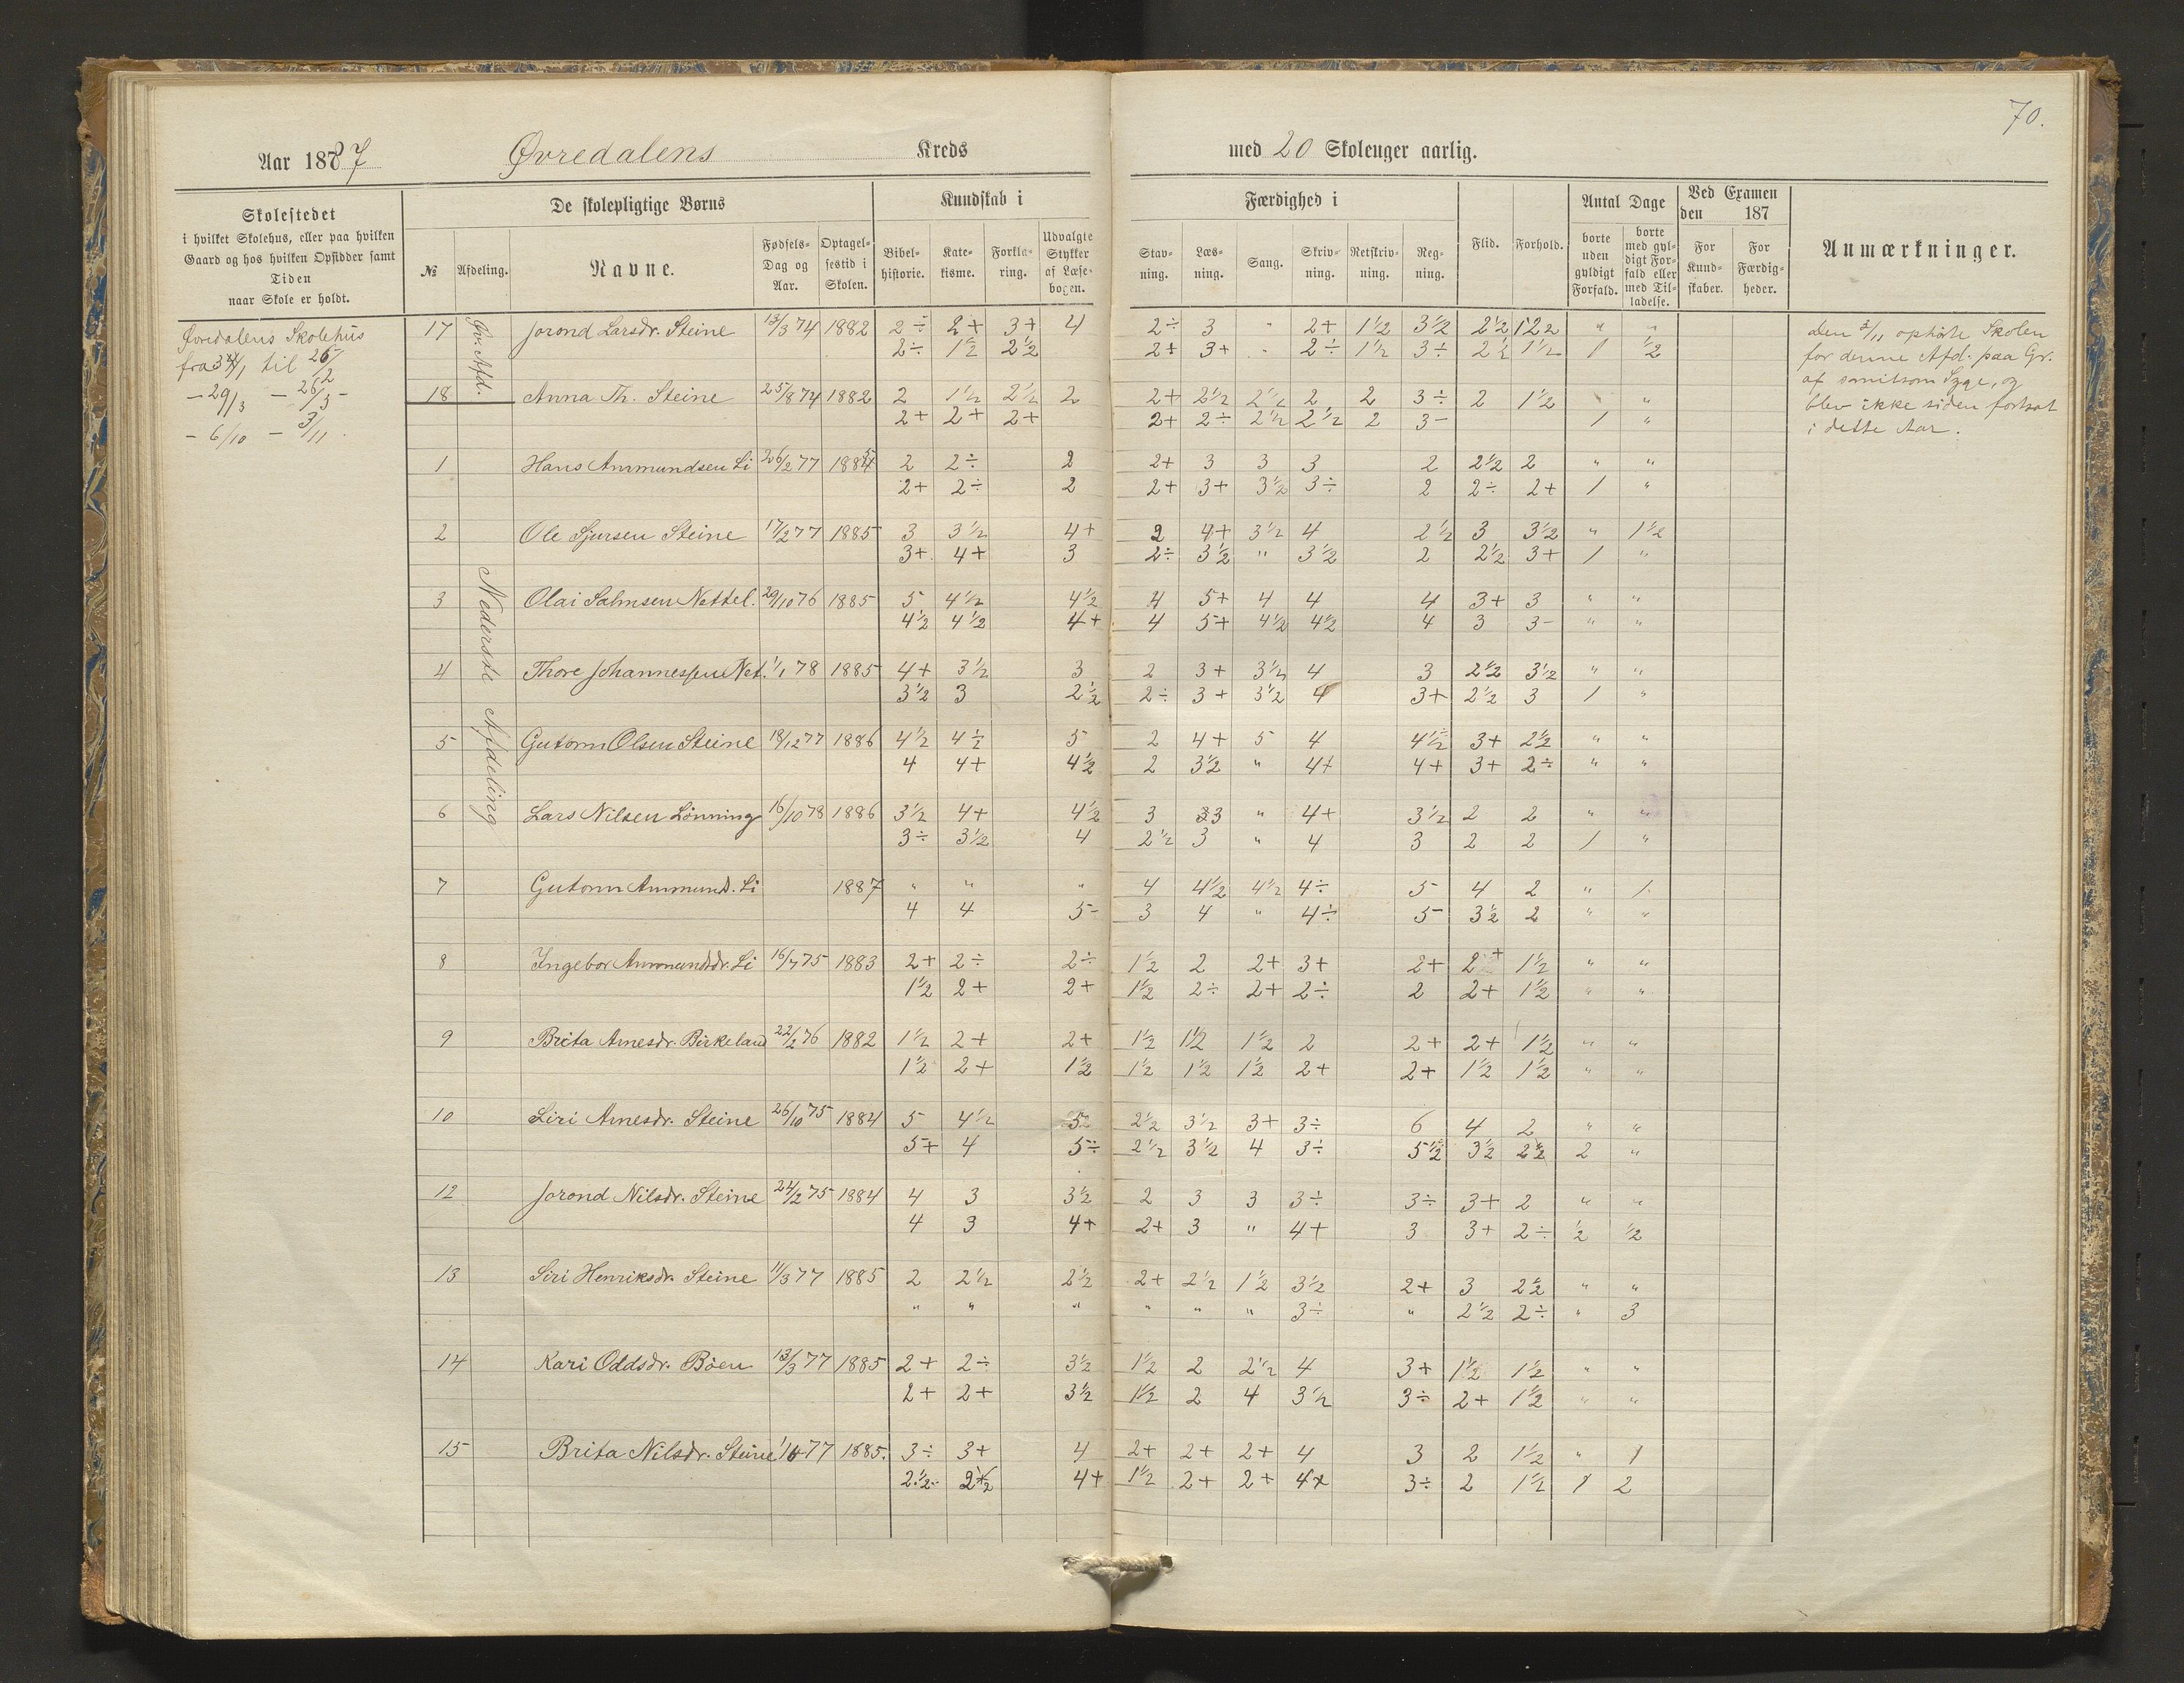 70.
Aar 1887 Øvredalens Kreds med 20 Skoleuger aarlig.
Skolestedet i hvilket Skolehus, eller paa hvilken Gaard og hos hvilken Opsidder samt Tiden naar Skole er holdt.
De skolepligtige Børns
№ Afdeling. Navne. Fødsels-Dag og Aar. Optagel-sestid i Skolen.
Kundskab i
Bibel-historie. Kate-kisme. Forkla-ring. Udvalgte Stykker af Læse-bogen.
Færdighed i
Stav-ning. Læs-ning. Sang. Skriv-ning. Retskriv-ning. Reg-ning.
Flid. Forhold.
Antal Dage
borte uden gyldigt Forfald. borte med gyl-digt For-fald eller med Til-ladelse.
Ved Examen den 187
For Kund-skaber. For Færdig-heder.
Anmærkninger.
Øvredalens Skolehus
til
- 29/3 -
- 6/10 - 3/11.
Øv. Afd.
Nederste Afdeling
17 Jorond Larsdr. Steine 13/3 74 1882 2÷ 2+ 3+ 4 2÷ 3 " 2+ 1½ 3½ 2½ " "
2÷ 1½ 2½ 2+ 3+ " 2÷ 1½ 3÷ 2½ 1½ 1 ½
18 Anna Th. Steine 25/8 74 1882 2 1½ 2½ 2 2+ 2½ 2½ 2 2 3÷ 2 1½ "
2+ 2+ 2+ 2+ 2÷ 2½ 2½ 2 3- 1 "
1 Hans Ammundsen Li 26/2 77 2 2÷ 2 2+ 3 3 3 2 2½ 2 " "
2+ 2÷ 2 2+ 3+ 3½ 3÷ 2 2÷ 2+ 1 "
2 Ole Sjursen Steine 17/2 77 1885 3 3½ 4+ 2 4+ 3½ 4 2½ 3 3½ " 1½
3+ 4+ 3 2÷ 3½ " 3½ 2 2½ 3+ 1 "
3 Olai Salmsen Nettel. 29/10 76 1885 5 4½ 4½ 4 5+ 4 4 4 3+ 3 " "
4½ 4½ 4+ 4 5+ 4½ 4½ 4 3 3- " "
4 Thore Johannessen Net. 1/1 78 1885 4+ 3½ 3 2 3+ 3½ 4 3 2½ 3½ " "
3½ 3 2½ 2÷ 3+ 3½ 4 3+ 2½ 3 1 "
5 Gutorm Olsen Steine 18/12 77 1886 4½ 4½ 5 2 4+ 5 4 4½ 3+ 2½ " "
4 4+ 4½ 2 3½ " 4+ 4+ 3+ 2÷ " "
6 Lars Nilsen Lönning 16/10 78 1886 3½ 4+ 4½ 3 3 " 4+ 3½ 2 2 " "
3÷ 3½ 4 2½ 3 " 4 3 2 2 1 "
7 Gutorm Ammund. Li 1887 " " " 4 4½ 4½ 4÷ 5 4 2 " 1
4 4 5- 3 4 " 4÷ 5 3½ 2 " "
8 Ingebor Ammundsdr. Li 16/7 75 1883 2+ 2÷ 2÷ 1½ 2 2+ 3+ 2+ 2+ 1½ " "
1½ 2+ 2+ 1½ 2÷ 2+ 2÷ 2 2+ 1½ " "
9 Brita Arnesdr. Birkeland 22/2 76 1882 1½ 2+ 2+ 1½ 1½ 1½ 2 2+ 2+ 1½ " "
1½ 2+ 1½ 1½ 1½ 1½ 2+ 2+ 1½ 1½ " "
10 Siri Arnesdr. Steine 26/10 75 1884 5 4½ 5 2½ 3½ 3+ 3÷ 6 4 2 " "
5+ 4 5÷ 2½ 3½ 4 3÷ 5½ 3½ 2½ 2 "
12 Jorond Nilsdr. Steine 24/2 75 1884 4 3 3½ 2 3 3 3÷ 3÷ 3+ 2 " "
4 3 4+ 2+ 3 " 4+ 3 3+ 2÷ ½ ½
13 Siri Henriksdr. Steine 11/3 77 1885 2 2½ 2½ 2+ 2½ 1½ 3½ 2+ 3 2½ " "
" " " " " " 3÷ " 2½ 2÷ " 3
14 Kari Oddsdr. Böen 13/3 77 1885 2+ 2÷ 3½ 1½ 2 2½ 4 3+ 1½ 1½ " "
2+ 2+ 3½ 1½ 2 4 3½ 3÷ 2+ 1½ " "
15 Brita Nilsdr. Steine 77 1885. 3÷ 3+ 4 2+ 2+ 2+ 4 3 2 1½ " 1
2½ 2½ 4+ 1½ 2+ 2+ 4+ 3÷ 2 1½ 1 2
den 3/11 ophörte Skolen
for denne Afd. paa Gr.
af smitsom Syge, og
blev ikke siden fortsat
i dette Aar.